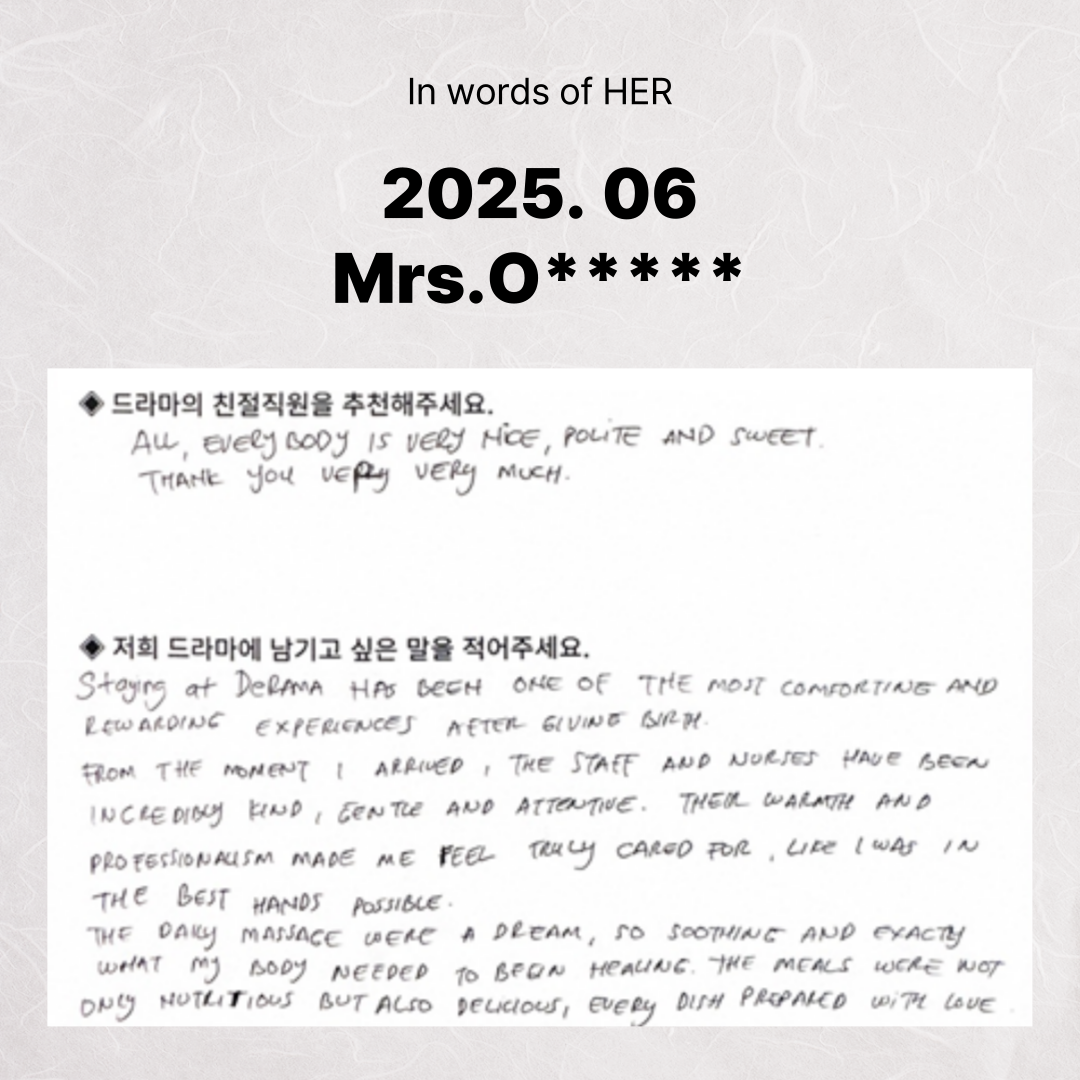 In words of HER
2025. 06
Mrs.O*****
◈ 드라마의 친절직원을 추천해주세요.
ALL, EVERYBODY IS VERY NICE, POLITE AND SWEET.
THANK YOU VERY VERY MUCH.
◈ 저희 드라마에 남기고 싶은 말을 적어주세요.
Staying at DeRAMA HAS BEEN ONE OF THE MOST COMFORTING AND
REWARDING EXPERIENCES AFTER GIVING BIRTH.
FROM THE MOMENT I ARRIVED, THE STAFF AND NURSES HAVE BEEN
INCREDIBLY KIND, GENTLE AND ATTENTIVE. THEIR WARMTH AND
PROFESSIONALISM MADE ME FEEL TRULY CARED FOR, LIKE I WAS IN
THE BEST HANDS POSSIBLE.
THE DAILY MASSAGE WERE A DREAM, SO SOOTHING AND EXACTLY
WHAT MY BODY NEEDED TO BEGIN HEALING. THE MEALS WERE NOT
ONLY NUTRITIOUS BUT ALSO DELICIOUS, EVERY DISH PREPARED WITH LOVE.